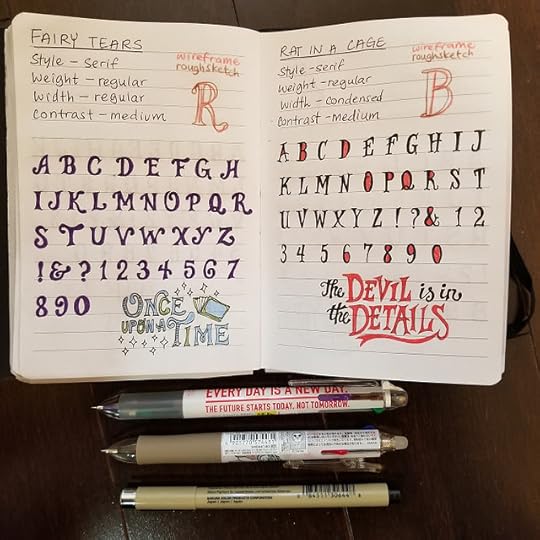 FAIRY TEARS
Style – serif
weight – regular
width – regular
contrast – medium
wireframe
roughsketch
R
A B C D E F G H
I J K L M N O P Q R
S T U V W X Y Z
! & ? 1 2 3 4 5 6 7
8 9 0
ONCE
UPON A
TIME
RAT IN A CAGE
Style – serif
weight – regular
width – condensed
contrast – medium
wireframe
roughsketch
B
A B C D E F G H I J
K L M N O P Q R S T
U V W X Y Z ! ? & 1 2
3 4 5 6 7 8 9 0
The DEVIL is in
the DETAILS
EVERY DAY IS A NEW DAY.
THE FUTURE STARTS TODAY, NOT TOMORROW.